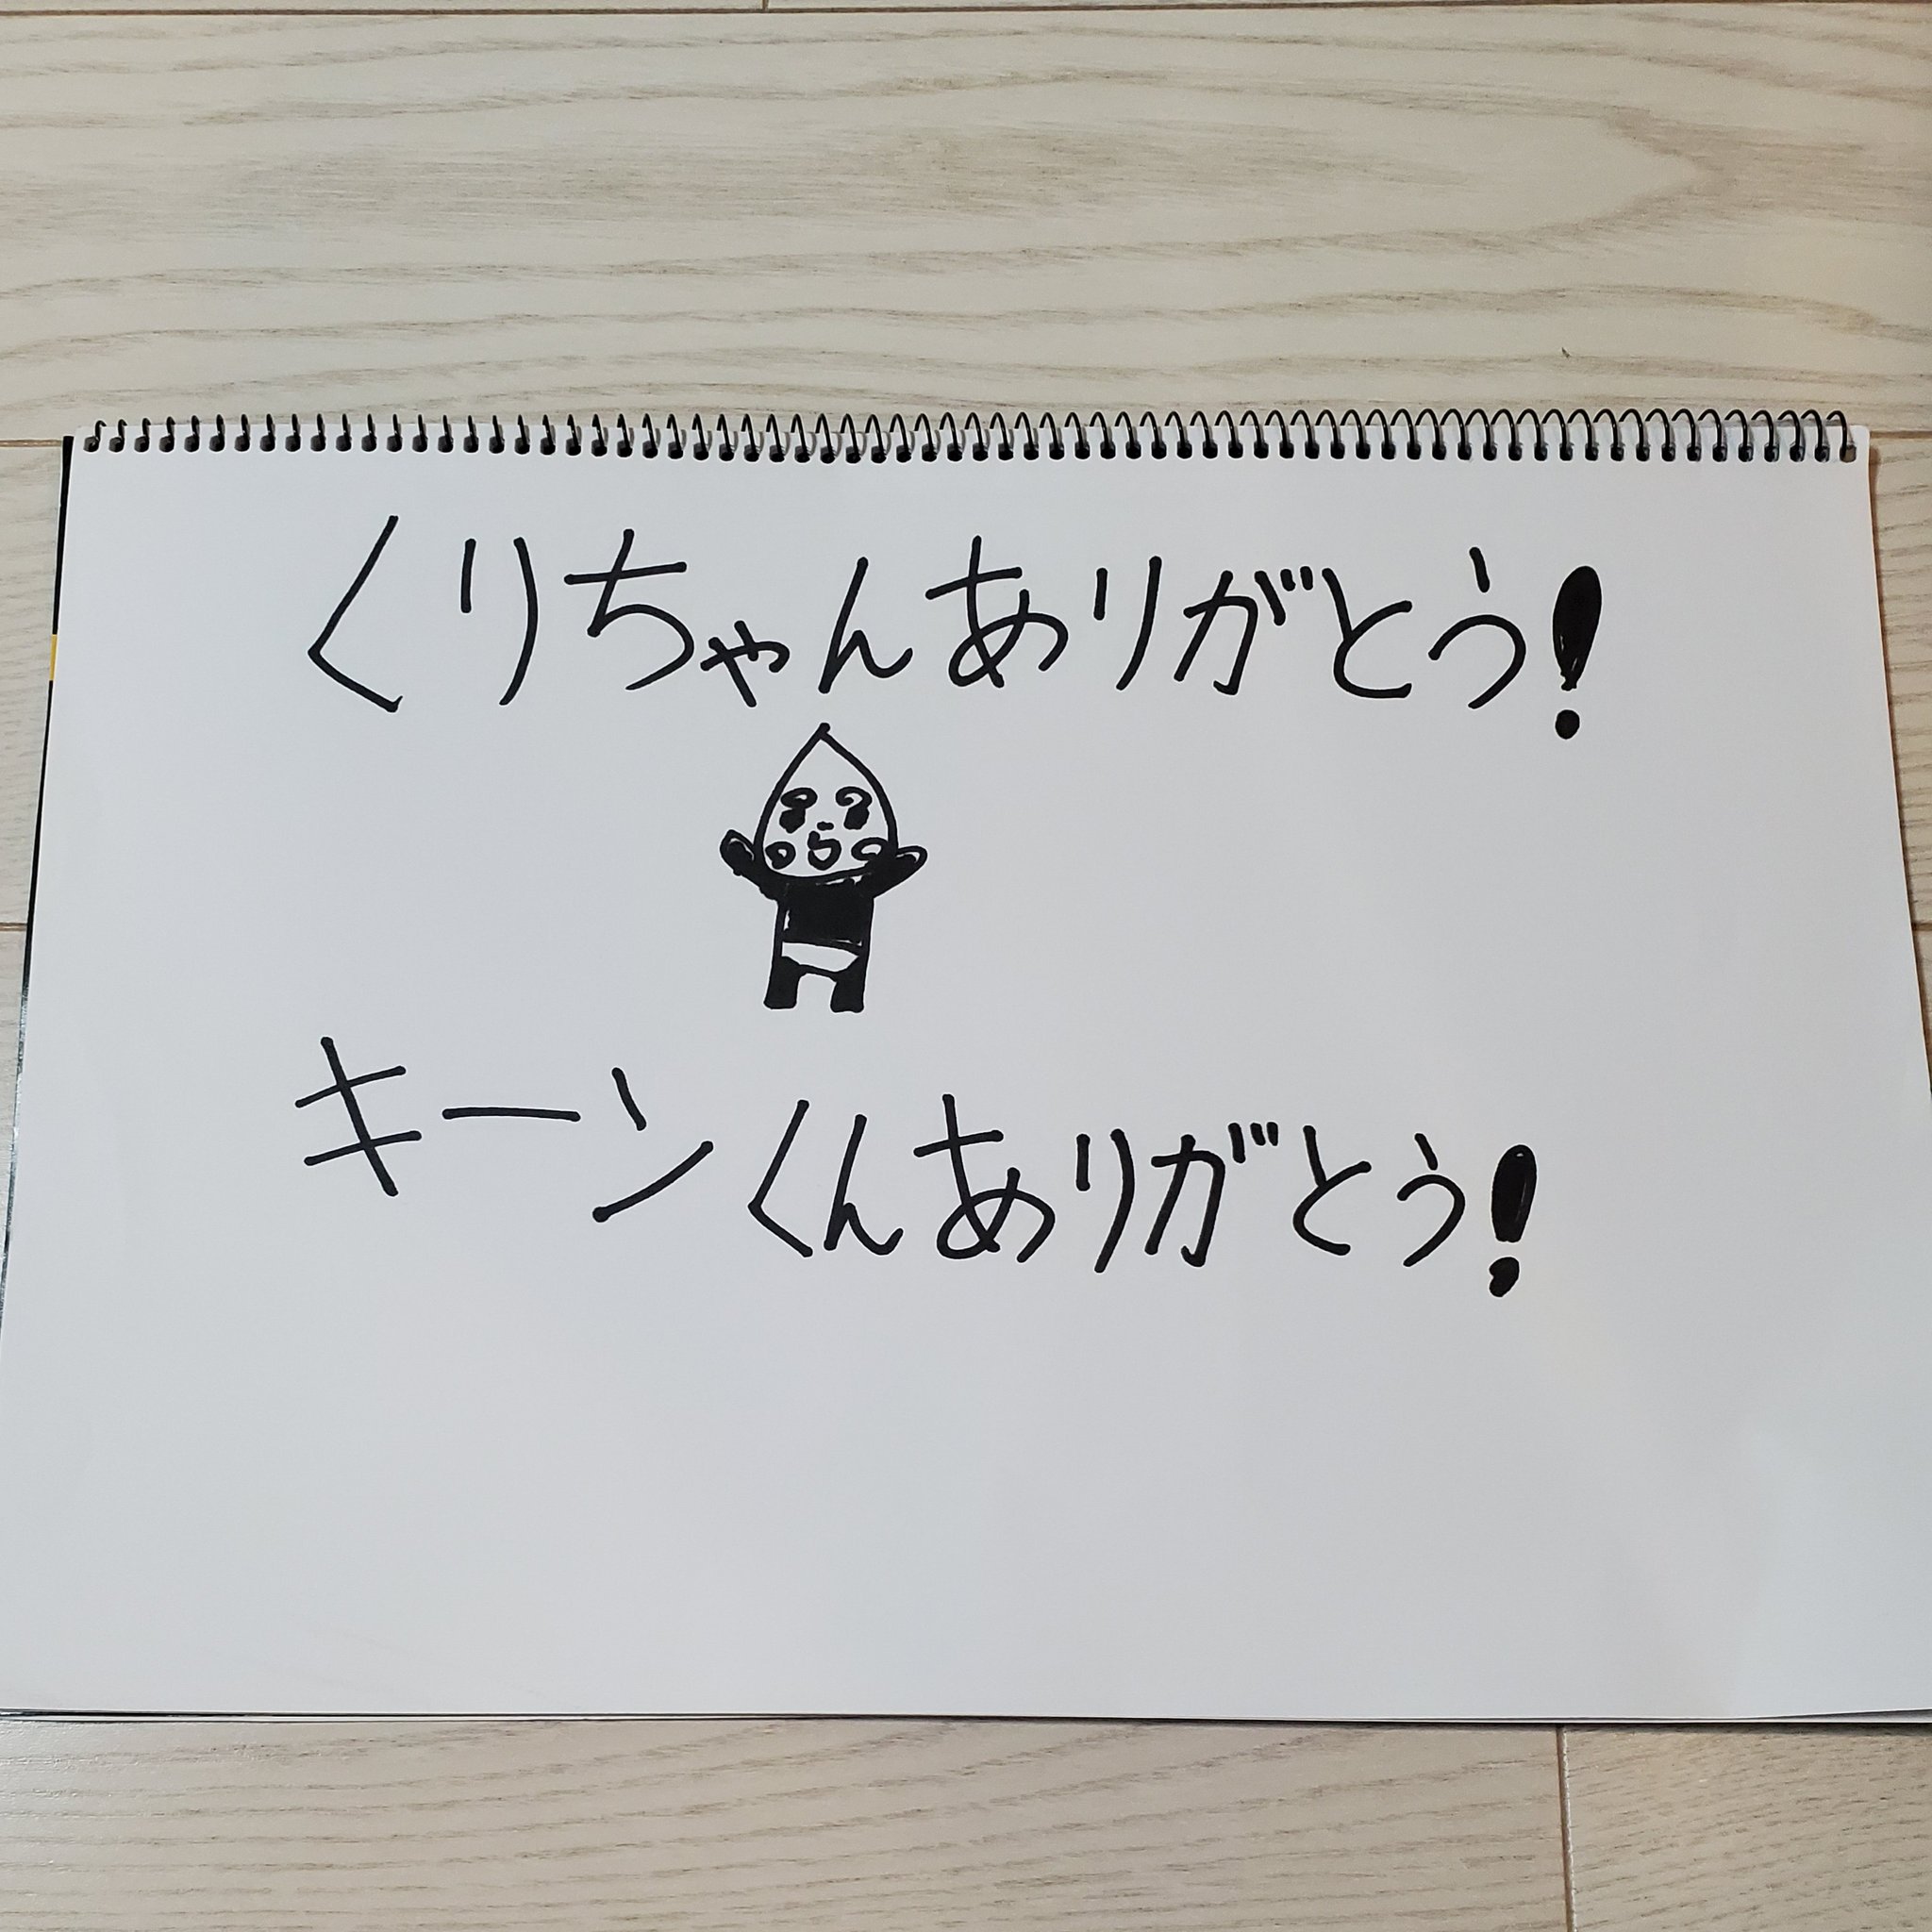 くりちゃんありがとう!
キーンくんありがとう!